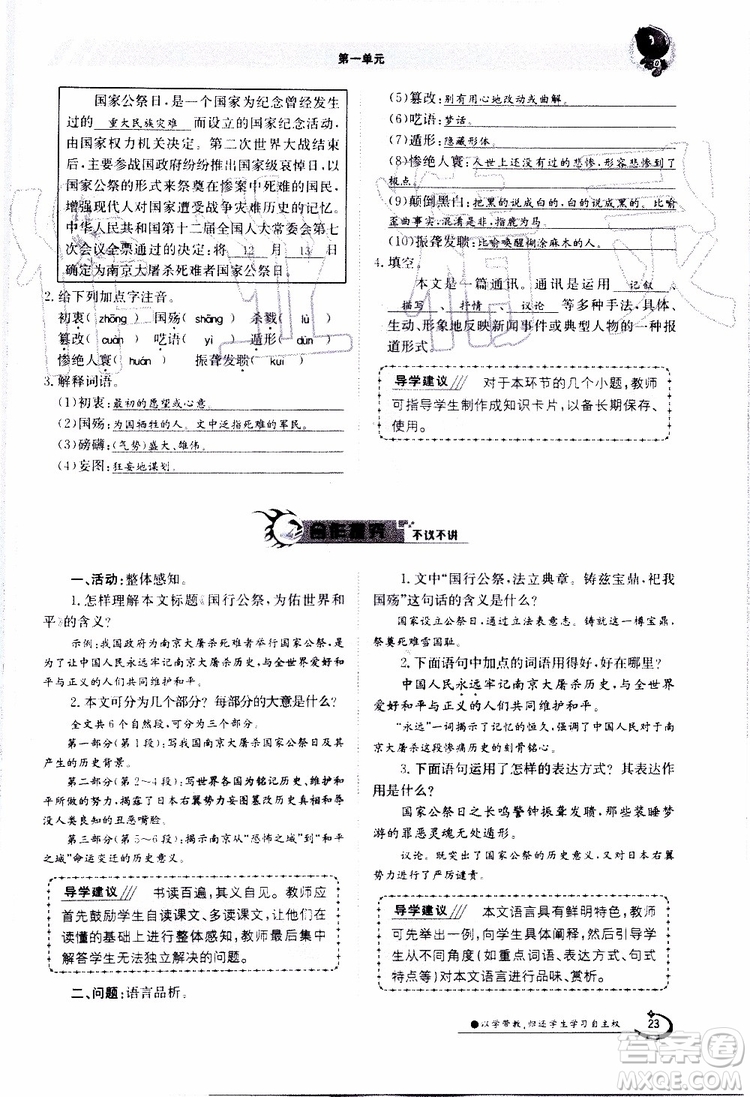 第一单元
国家公祭日,是一个国家为纪念曾经发生
过的 重大民族灾难 而设立的国家纪念活动,
由国家权力机关决定。第二次世界大战结束
后,主要参战国政府纷纷推出国家级哀悼日,以
国家公祭的形式来祭奠在惨案中死难的国民,
增强现代人对国家遭受战争灾难历史的记忆。
中华人民共和国第十二届全国人大常委会第七
次会议全票通过的决定:将 12 月 13 日
确定为南京大屠杀死难者国家公祭日。
2.给下列加点字注音。
初衷(zhōng) 国殇(shāng) 杀戮(lù)
篡改(cuàn) 呓语(yì) 遁形(dùn)
惨绝人寰(huán) 振聋发聩(kuì)
3.解释词语。
(1)初衷:最初的愿望或心意。
(2)国殇:为国牺牲的人。文中指死难的军民。
(3)磅礴:(气势)盛大、雄伟。
(4)妄图:狂妄地谋划。
(5)篡改:别有用心地改动或曲解。
(6)呓语:梦话。
(7)遁形:隐藏形体。
(8)惨绝人寰:人世上还没有过的悲惨,形容悲惨到了
极点。
(9)颠倒黑白:把黑的说成白的,白的说成黑的。比喻
歪曲事实,混淆是非,指鹿为马。
(10)振聋发聩:比喻唤醒糊涂麻木的人。
4.填空。
本文是一篇通讯。通讯是运用 记叙 、
描写 、 抒情 、 议论 等多种手法,具体、
生动、形象地反映新闻事件或典型人物的一种报
道形式。
导学建议 对于本环节的几个小题,教师
可指导学生制作成知识卡片,以备长期保存、
使用。
合作探究 不议不讲
一、活动:整体感知。
1.怎样理解本文标题《国行公祭,为佑世界和
平》的含义?
示例:我国政府为南京大屠杀死难者举行国家公祭,是
为了让中国人民永远牢记南京大屠杀历史,与世界爱好和
平与正义的人们共同维护和平。
2.本文可分为几个部分?每部分的大意是什么?
全文共6个自然段,可分为三个部分。
第一部分(第1段):写我国南京大屠杀国家公祭日及其
产生的历史背景。
第二部分(第2～4段):写世界各国为铭记历史、维护和
平所做的努力,批驳了日本右翼势力妄图篡改历史、不敢让
人类良知知道的丑恶嘴脸。
第三部分(第5～6段):揭示南京从“恐怖之城”到“和平
之城”命运变迁的历史意义。
导学建议 书读百遍,其义自见。教师应
首先鼓励学生自读课文、多读课文,让他们在
读懂的基础上进行整体感知,教师最后集中
解答学生无法独立解决的问题。
二、问题:语言品析。
1.文中“国行公祭,法立典章。铸兹宝鼎,祀我
国殇”这句话的含义是什么?
国家设立公祭日,通过立法表意志。铸就这一樽宝鼎,
祭奠死难雪国耻。
2.下面语句中加点的词语用得好,好在哪里?
中国人民永远牢记南京大屠杀历史,与世界爱好
和平与正义的人们共同维护和平。
“永远”一词揭示了记忆的恒久,强调了中国人民对南
京大屠杀这段惨痛历史的刻骨铭心。
3.下面语句运用了怎样的表达方式?其表达效
果是什么?
国家公祭日之长鸣警钟振聋发聩,让那些装睡梦
游的罪恶灵魂无处遁形。
议论。既突出了国家公祭的历史意义,又对日本右翼
势力进行了严厉谴责。
导学建议 本文语言具有鲜明特色,教师
可先举出一例,向学生具体阐释,再引导学生
从不同角度(如重点词语、表达方式、句式
特点等)对本文语言进行品味、赏析。
●以学带教,归还学生学习自主权 23
答案圈
MXQE.COM